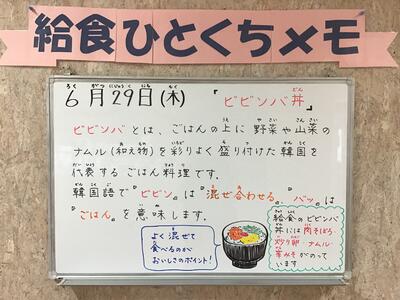 給食ひとくちメモ
6月29日(木) 『ビビンバ丼』
ビビンバとは、ごはんの上に野菜や山菜の
ナムル(和え物)を彩りよく盛り付けた韓国を
代表するごはん料理です。
韓国語で『ビビン』は『混ぜ合わせる』、『バッ』は
『ごはん』を意味します。
よく混ぜて
食べるのが
おいしさのポイント!
給食のビビンバ
丼には肉そぼろ・
炒り卵・ナムル・
がのって
います